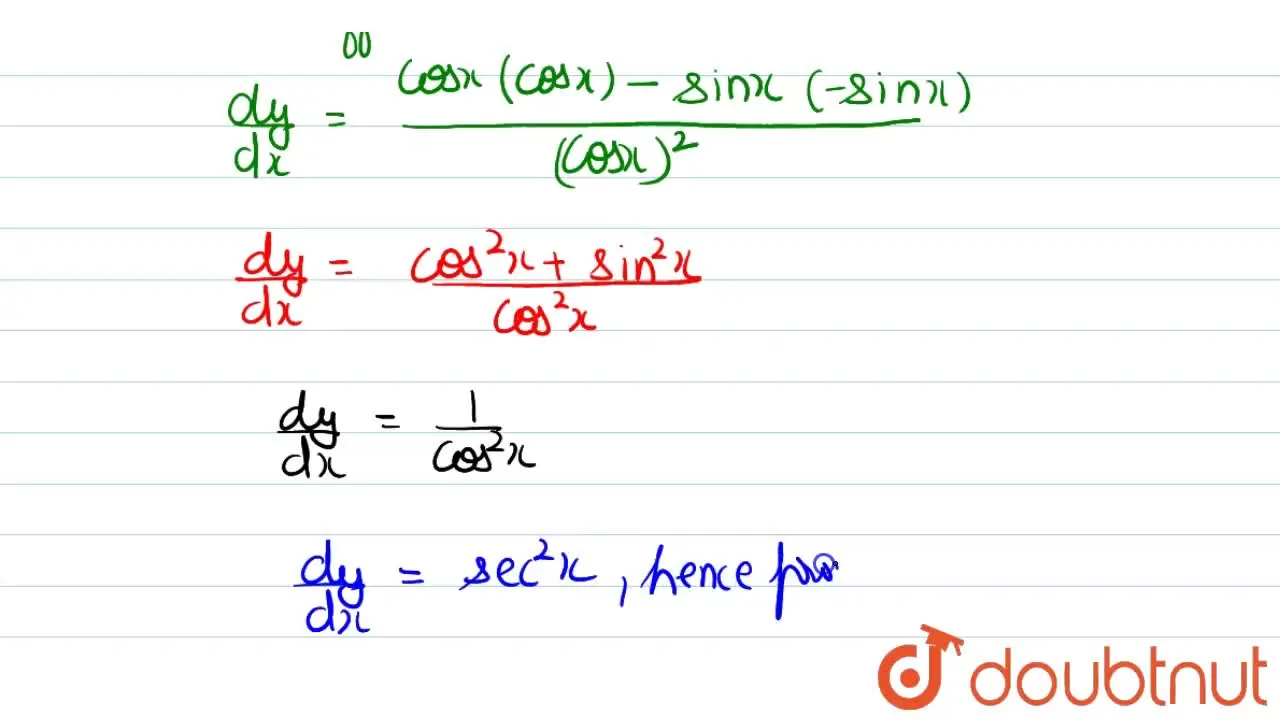 dy/dx = cosx (cosx) - sinx (-sinx) / (cosx)²
dy/dx = cos²x + sin²x / cos²x
dy/dx = 1 / cos²x
dy/dx = sec²x , hence
doubtnut